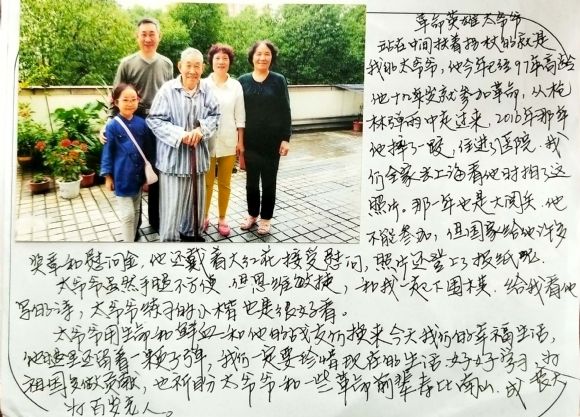 革命英雄太爷爷
站在中间扶着拐杖的就是
我的太爷爷,他今年已经97年高龄
他十九岁就参加革命,从枪
林弹雨中走过来,2016年那年
他摔了一跤,住进了医院,我
们全家去上海看他时拍了这
照片。那一年也是大阅兵,他
不能参加,但国家给他许多
奖章和慰问金,他还戴着大红花接受慰问,照片还登上了报纸呢。
太爷爷虽然手腿不方便,但思维敏捷,和我一起下围棋,给我看他
写的诗,太爷爷练习的小楷也是很好看。
太爷爷用生命和鲜血和他的战友们换来今天我们的幸福生活,
他腿里还留着一颗子弹,我们一定要珍惜现在的生活好好学习,长大
为祖国多做贡献,也祈盼太爷爷和一些革命前辈寿比南山,成
为百岁老人。